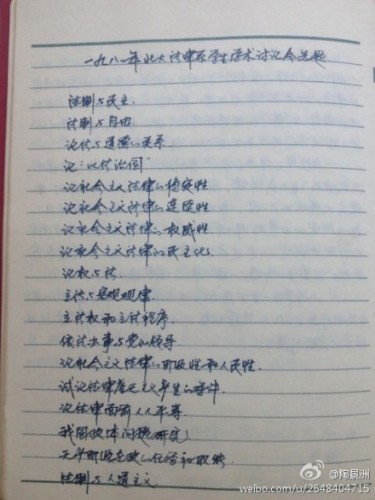 一九八一年北大法律系学生学术讨论会选题
法制与民主
法制与自由
论法与道德的关系
论"以法治国"
论社会主义法律的稳定性
论社会主义法律的连续性
论社会主义法律的权威性
论社会主义法律的民主化
论权与法
立法与客观规律
立法权和立法程序
依法办事与党的领导
论社会主义法律的阶级性和人民性
试论法律虚无主义产生的条件
论法律面前人人平等
我国政体问题研究
无产阶级专政的任务和
法制与人道主义
@陶景洲
weibo.com/u/2648404715